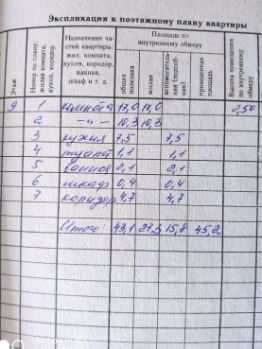 Экспликация к поэтажному плану квартиры
Этаж
Номер по плану: жилая комната, кухня, коридор
Назначения частей квартиры: жил. комната, кухня, коридор, ванная, шкаф и т. д.
Площадь по внутреннему обмеру
общая полезная
жилая
вспомогательная (подсобная)
Высота помещения по внутреннему обмеру
9 1 комната 17,0 17,0 2,50
2 -"- 10,3 10,3
3 кухня 7,5 7,5
4 туалет 1,1 1,1
5 ванная 2,1 2,1
6 шкаф 0,4 0,4
7 коридор 4,7 4,7
Итого: 43,1 27,3 15,8 45,2